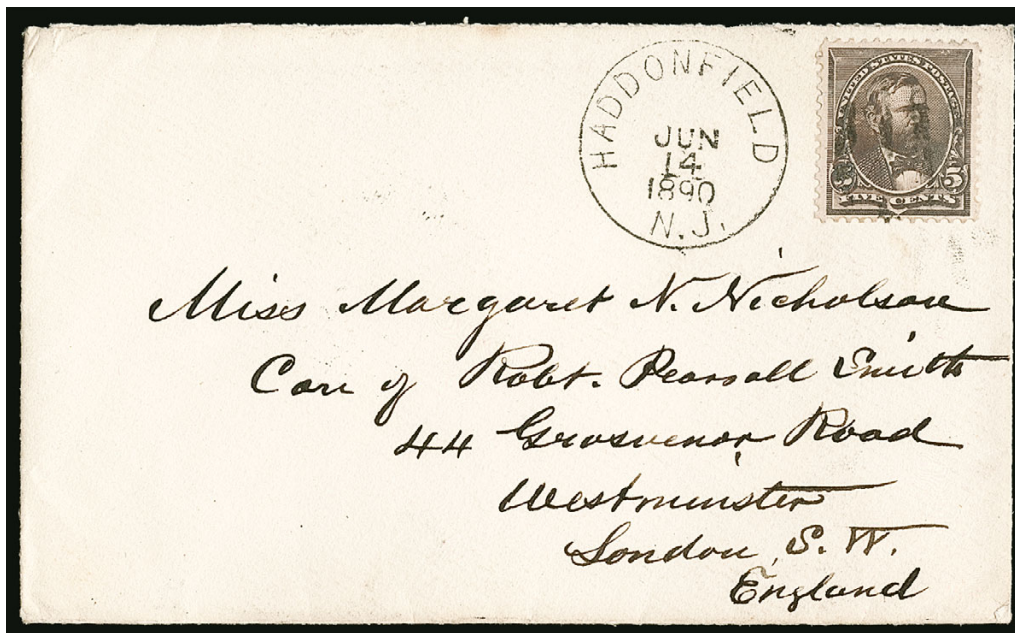 HADDONFIELD
JUN
14
1890
N.J.
UNITED STATES POSTAGE
5 5
FIVE CENTS
Miss Margaret N. Nicholson
Care of Robt. Pearsall Smith
44 Grosvenor Road
Westminster
London, S. W.
England